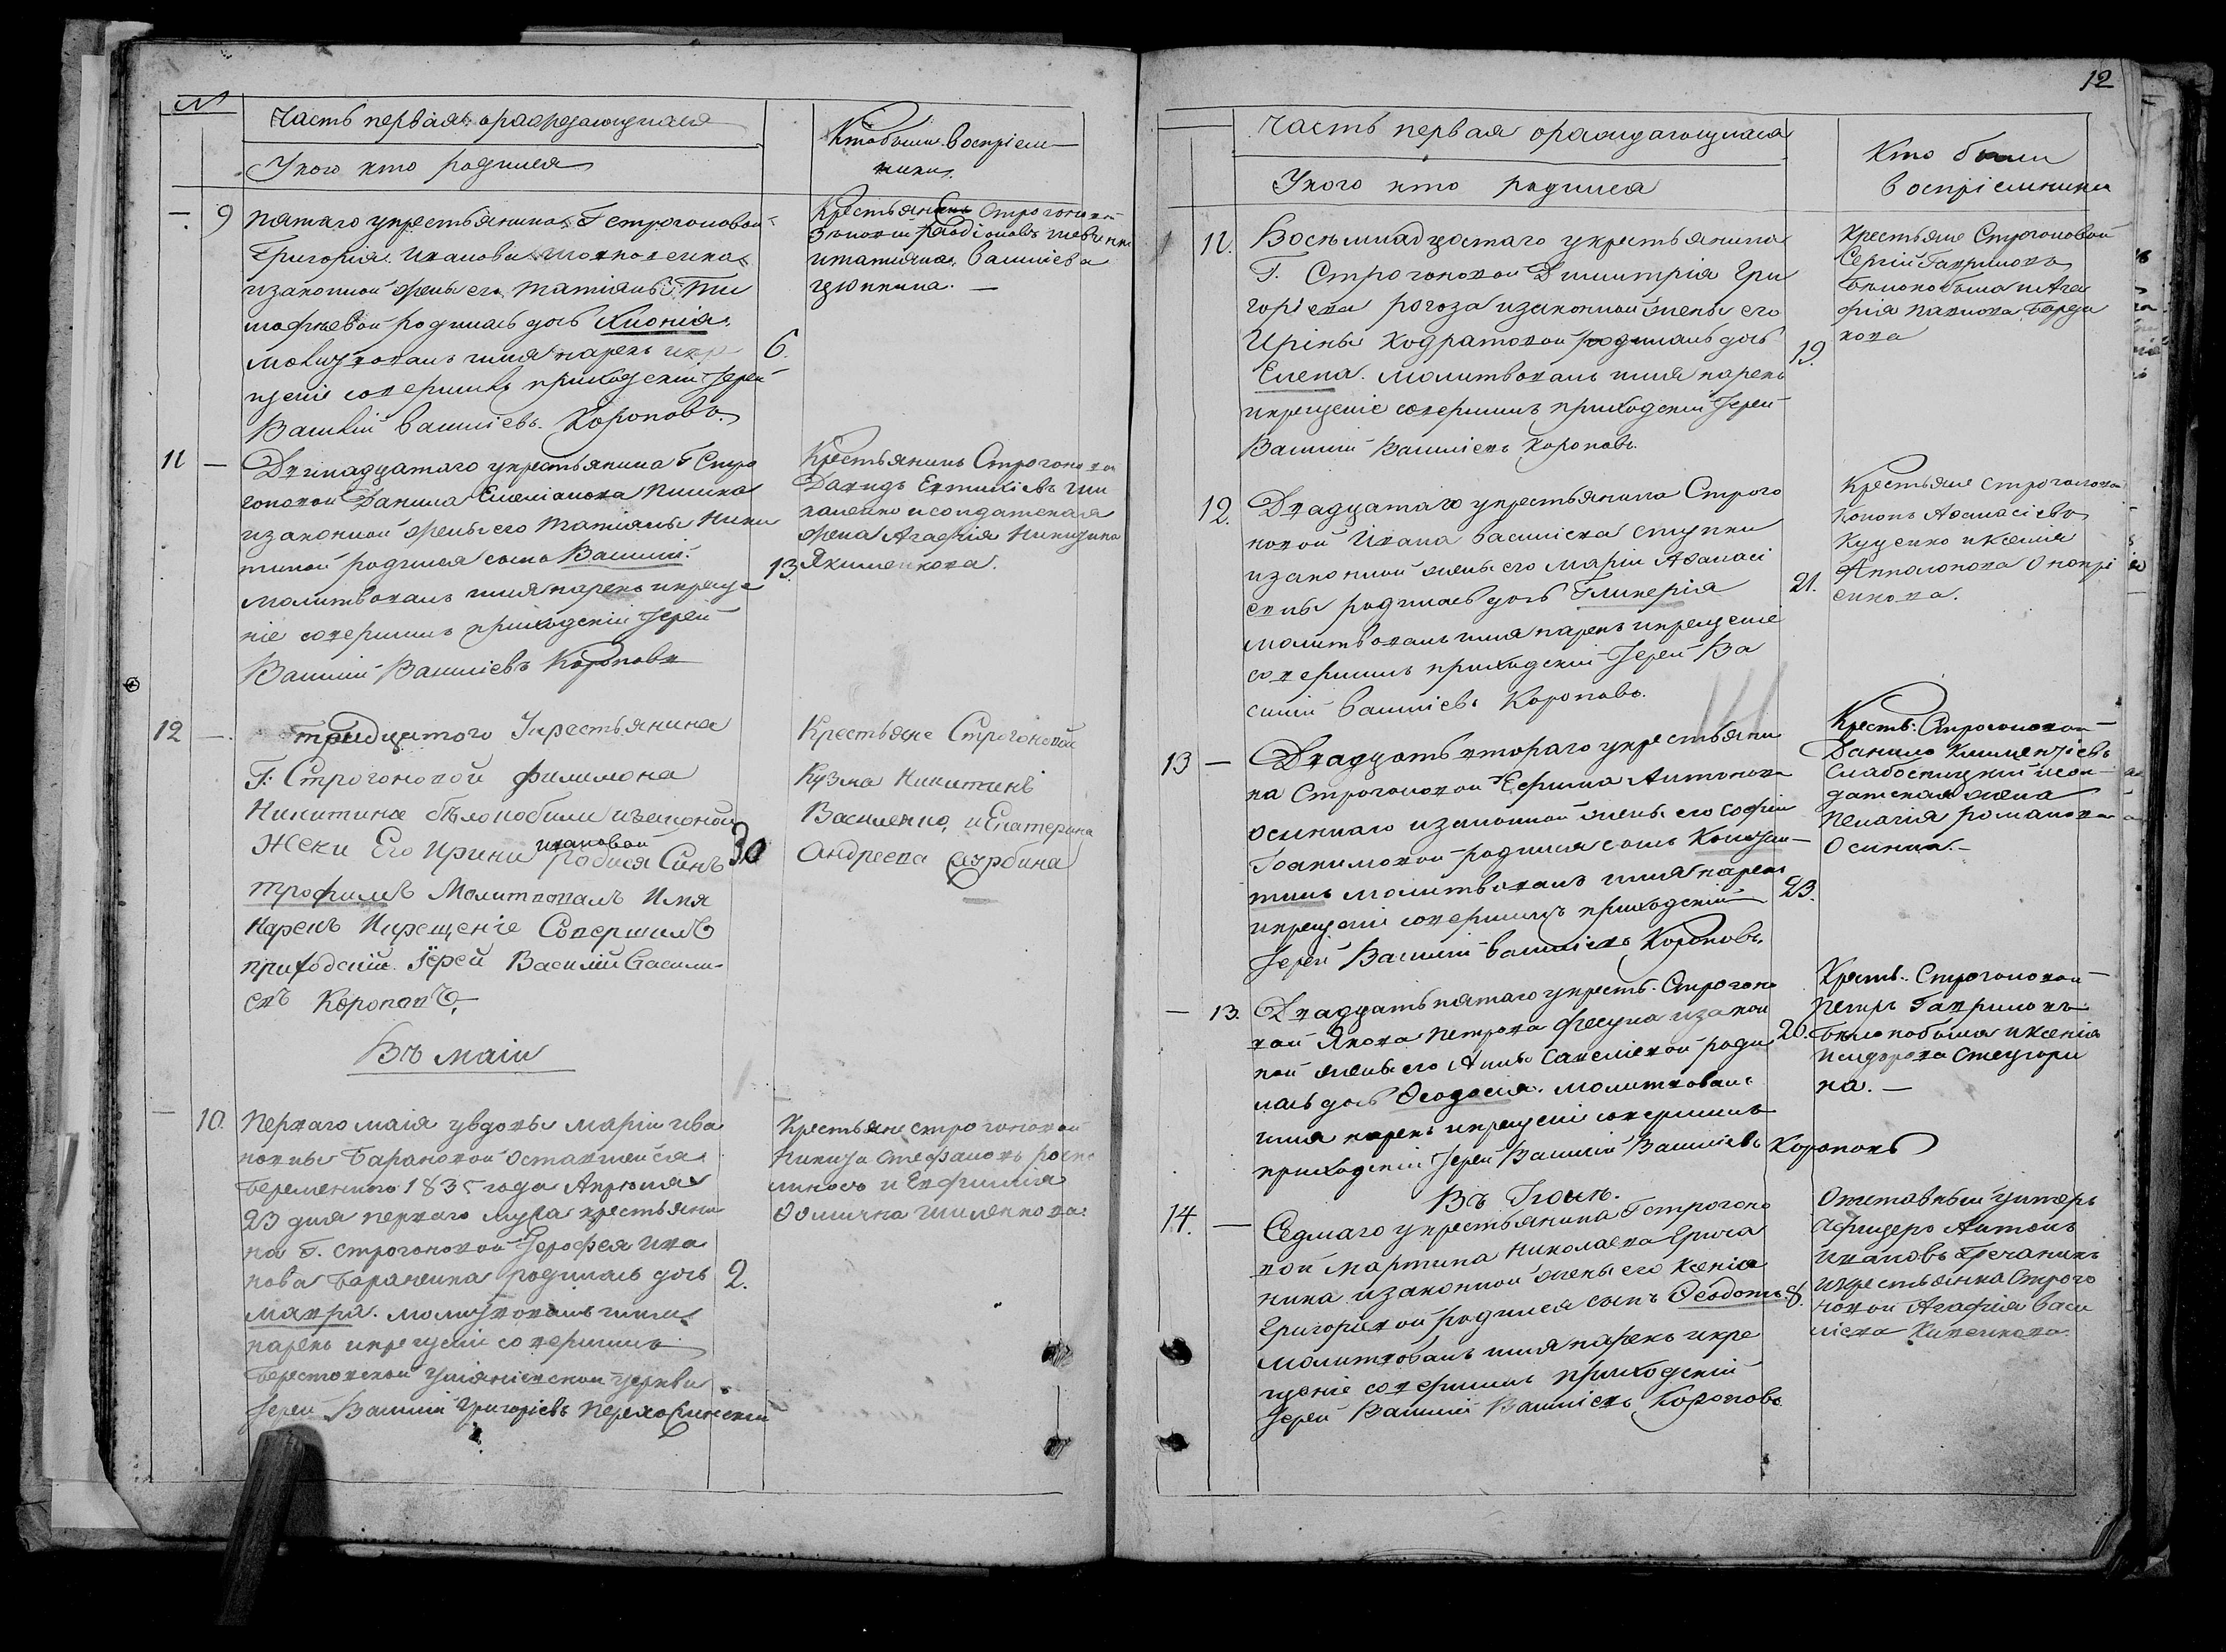 №
Часть первая ораждающихся
У кого кто родился
Кто были воспріем
ники
9 Пятаго у крестьянина Г Строгоновой
Григорія Иванова
и законной жены его Татіяны Ти
мофѣевой родилась дочь Хионія.
молитвовалъ имя нарекъ и кре 6.
щеніе совершилъ приходскій Іерей
Василій Василіевъ Короповъ.
Крестьянинъ Строгоновой
Зѣновій Родіоновъ Шевченко
и татіяна Василіева
11 Двенадцатаго у крестьянина Г Стро
гоновой Данила Емеліанова
и законной жены его Татіяны Ники
тиной родился сынъ Василій.
молитвовалъ имя нарекъ и креще 13.
ніе совершилъ приходскій Іерей
Василій Василіевъ Короповъ
Крестьянинъ Строгоновой
Давидъ Евтихіевъ Ши
каленко и солдатская
жена Агафія Никитина
Якименкова.
12 тридцатого У крестьянина
Г: Строгоновой филимона
Никитина бѣлокобили изаконой
Жени Его Ирини ивановой родися Синъ 30
трофимъ Молитвовалъ Имя
Нарекъ Икрещеніе Совершилъ
приходскій Іерей Василій Василі-
евъ Короповъ
Крестьяне Строгоновой
Кузма Никитинъ
Василенко, и Екатерина
Андреева Щурбина
Въ маіи
10. Перваго маія у вдовы Маріи Ива
новны Барановой оставшейся
беременного 1835 года Апрѣля
23 дня перваго мужа крестьяни
на Г. Строгоновой Іерофея Ива
нова Баранника родилась дочь 2.
Мавра. молитвовалъ имя
нарекъ и крещеніе совершилъ
Берестовской Успѣнской церкви
Іерей Василій Григоріевъ
Крестьяне Строгоновой
Никита Стефановъ
и Евфимія
Фомична Шиленкова
12
Часть первая ораждающихся
У кого кто родился
Кто были
воспріемники
11. Восѣмнадцатаго у крестьянина
Г. Строгоновой Димитрія Гри
горіева рогоза и законной жены его
Ирины Кодратовой родилась дочь 19.
Елена. молитвовалъ имя нарекъ
и крещеніе совершилъ приходскій Іерей
Василій Василіевъ Короповъ.
Крестьяне Строгоновой
Сергій Гавриловъ
Бѣлокобыла и Ага
фія Павлова Береди
кова
12. Двадцатаго у крестьянина Строго
новой Ивана Василіева Ступки
и законной жены его Маріи Афанасі
евны родилась дочь Гликерія 21.
молитвовалъ имя нарекъ и крещеніе
совершилъ приходскій Іерей Ва
силій Василіевъ Короповъ.
Крестьяне Строгоновой
Кононъ Афанасіевъ
Куценко и Ксенія
Апполонова Онопрі
енкова.
13 Двадцать втораго у крестьяни
на Строгоновой Ефима Антонова
Осиннаго и законной жены его Софіи
Іоакимовой родился сынъ Констан
тинъ молитвовалъ имя нарекъ 23.
и крещеніе совершилъ приходскій
Іерей Василій Василіевъ Короповъ.
Крестъ. Строгоновой
Данило Климентіевъ
Слабоспицкій и сол
датская жена
Пелагія Романова
Осинна.
13. Двадцать пятаго у крестъ. Строгоно
вой Якова Петрова Фесуна и закон
ной жены его Анны Савеліевой роди 26.
лась дочь Феодосія. молитвовалъ
имя нарекъ и крещеніе совершилъ
приходскій Іерей Василій Василіевъ Короповъ
Крестъ. Строгоновой
Петръ Гавриловъ
Бѣлокобыла и Ксенія
Исидорова Снегури
на.
Въ Іюнѣ.
14. Седмаго у крестьянина Г Строгоно
вой Мартина Николаева Ерича
ника и законной жены его Ксенія
Григоріевой родился сынъ Феодотъ. 8.
молитвовалъ имя нарекъ и кре
щеніе совершилъ приходскій
Іерей Василій Василіевъ Короповъ
Отставный унтеръ
афицеръ Антонъ
Ивановъ Гречаникъ
и крестьянка Строго
новой Агафія Васи
ліева